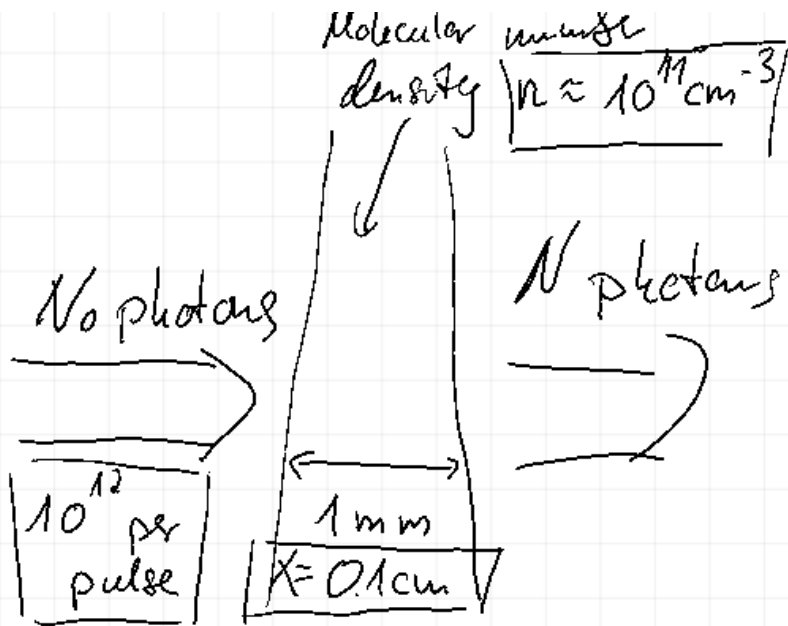 Molecular number
density n ≈ 10¹¹ cm⁻³
No photons
N photons
10¹² per
pulse
1 mm
X = 0.1 cm